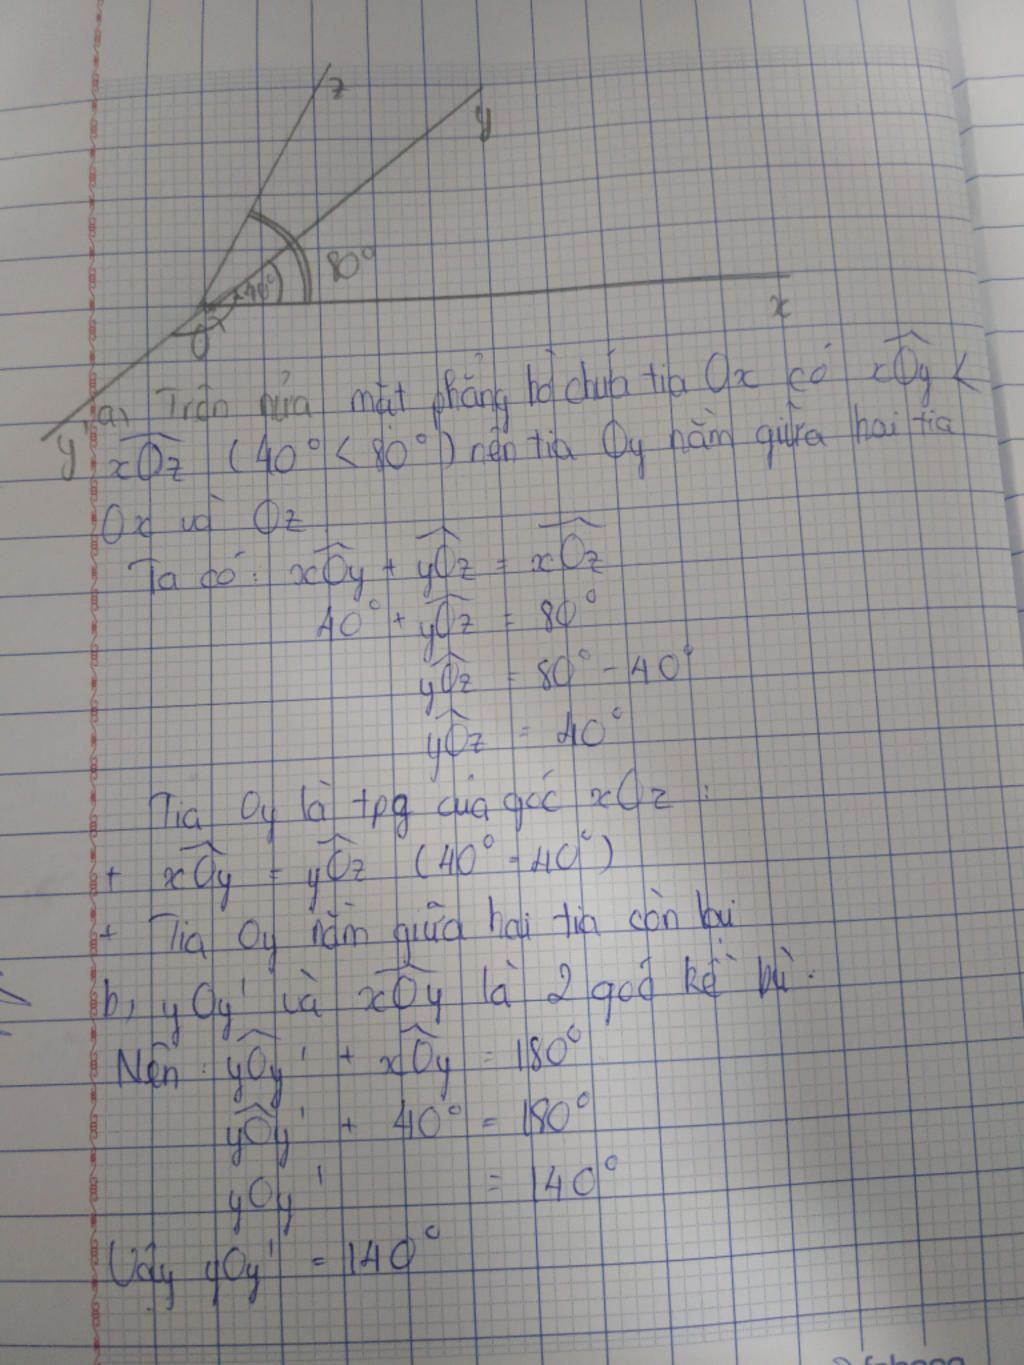 z
y
80°
40°
x
O
y'
a, Trên nửa mặt phẳng bờ chứa tia Ox có xOy <
xOz (40° < 80°) nên tia Oy nằm giữa hai tia
Ox và Oz
Ta có: xOy + yOz = xOz
40° + yOz = 80°
yOz = 80° - 40°
yOz = 40°
Tia Oy là tpg của góc xOz :
+ xOy = yOz (40° = 40°)
+ Tia Oy nằm giữa hai tia còn lại
b, yOy' và xOy là 2 góc kề bù.
Nên: yOy' + xOy = 180°
yOy' + 40° = 180°
yOy' = 140°
Vậy yOy' = 140°